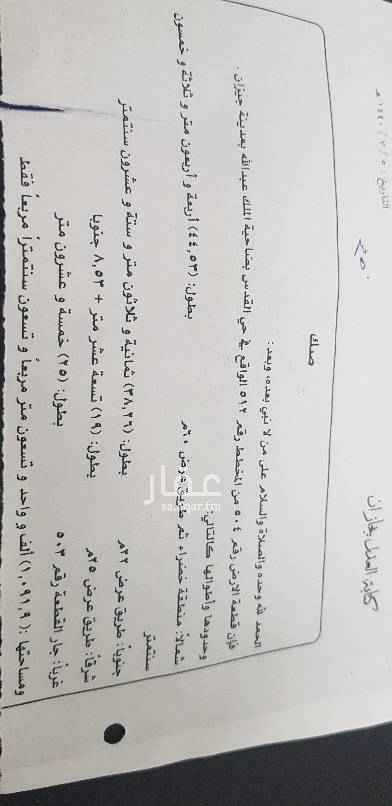 كتابة العدل بجازان
التاريخ
صك
الحمد لله وحده والصلاة والسلام على من لا نبي بعده، وبعد:
فإن قطعة الارض رقم ٥٠٤ من المخطط رقم ٥١٢ الواقع في حي القدس بضاحية الملك عبدالله بمدينة جيزان .
وحدودها وأطوالها كالتالي:
شمالاً: منطقة خضراء ثم طريق عرض ٦٠م بطول: (٤٤,٥٣) أربعة و أربعون متر و ثلاثة و خمسون
سنتمتر
جنوباً: طريق عرض ٢٢م بطول: (٣٨,٢٦) ثمانية و ثلاثون متر و ستة و عشرون سنتمتر
شرقاً: طريق عرض ٢٥م بطول: (١٩) تسعة عشر متر + ٨,٥٣ جنوبا
غرباً: جار القطعة رقم ٥٠٣ بطول: (٢٥) خمسة و عشرون متر
ومساحتها :(١,٠٩١,٩) ألف و واحد و تسعون متر مربعاً و تسعون سنتمتراً مربعاً فقط
عقار
sa.aqar.fm